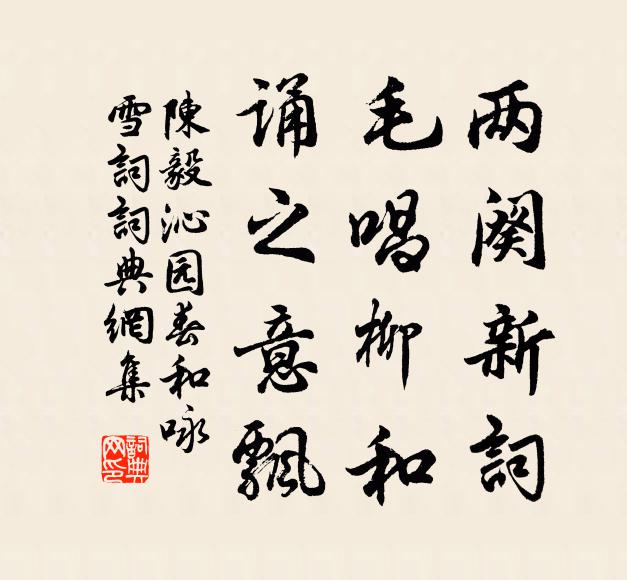 两阕新詞
毛唱柳和
诵之意飘
陳毅沁园春和咏
雪詞詞典網集
詞典
网印